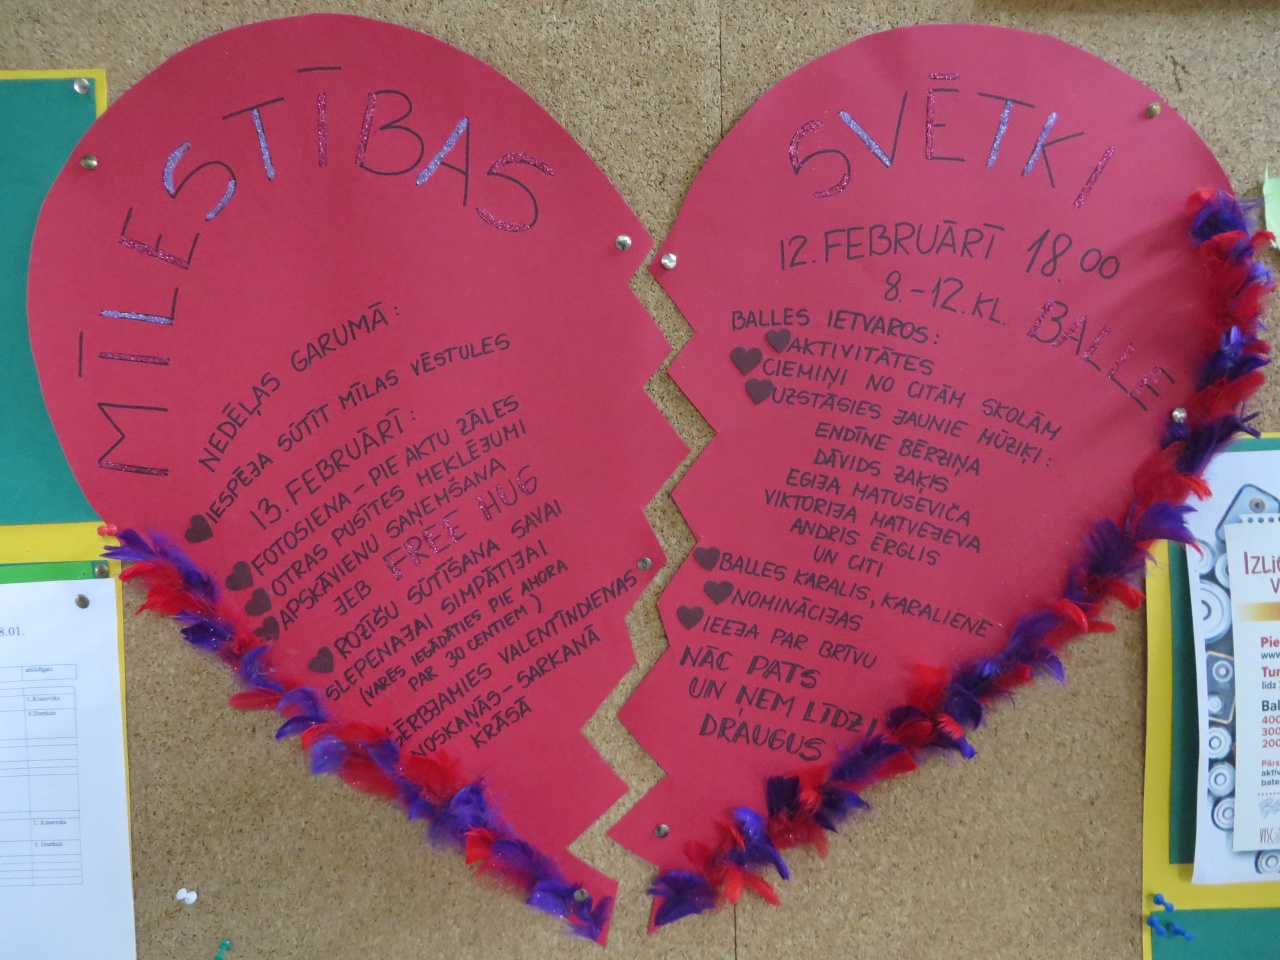 MĪLESTĪBAS
NEDĒĻAS GARUMĀ:
IESPĒJA SŪTĪT MĪLAS VĒSTULES
13. FEBRUĀRĪ:
FOTOSIENA - PIE AKTU ZĀLES
OTRAS PUSĪTES MEKLĒJUMI
APSKĀVIENU SAŅEMŠANA
JEB FREE HUG
ROZĪŠU SŪTĪŠANA SAVAI
SLEPENAJAI SIMPĀTIJAI
(VARĒS IEGĀDĀTIES PIE AMORA
PAR 30 CENTIEM)
ĢĒRBJAMIES VALENTĪNDIENAS
NOSKAŅĀS - SARKANĀ
KRĀSĀ
SVĒTKI
12. FEBRUĀRĪ 18.00
8.-12. KL. BALLE
BALLES IETVAROS:
AKTIVITĀTES
CIEMIŅI NO CITĀM SKOLĀM
UZSTĀSIES JAUNIE MŪZIĶI:
ENDĪNE BĒRZIŅA
DĀVIDS ZAĶIS
EGIJA MATUSĒVIČA
VIKTORIJA MATVEJEVA
ANDRIS ĒRGLIS
UN CITI
BALLES KARALIS, KARALIENE
NOMINĀCIJAS
IEEJA PAR BRĪVU
NĀC PATS
UN ŅEM LĪDZI
DRAUGUS
8.01.
atbildīgais
Pie
www.
Tur
līdz
Bal
400
300
200
Pārs
aktīv
bate